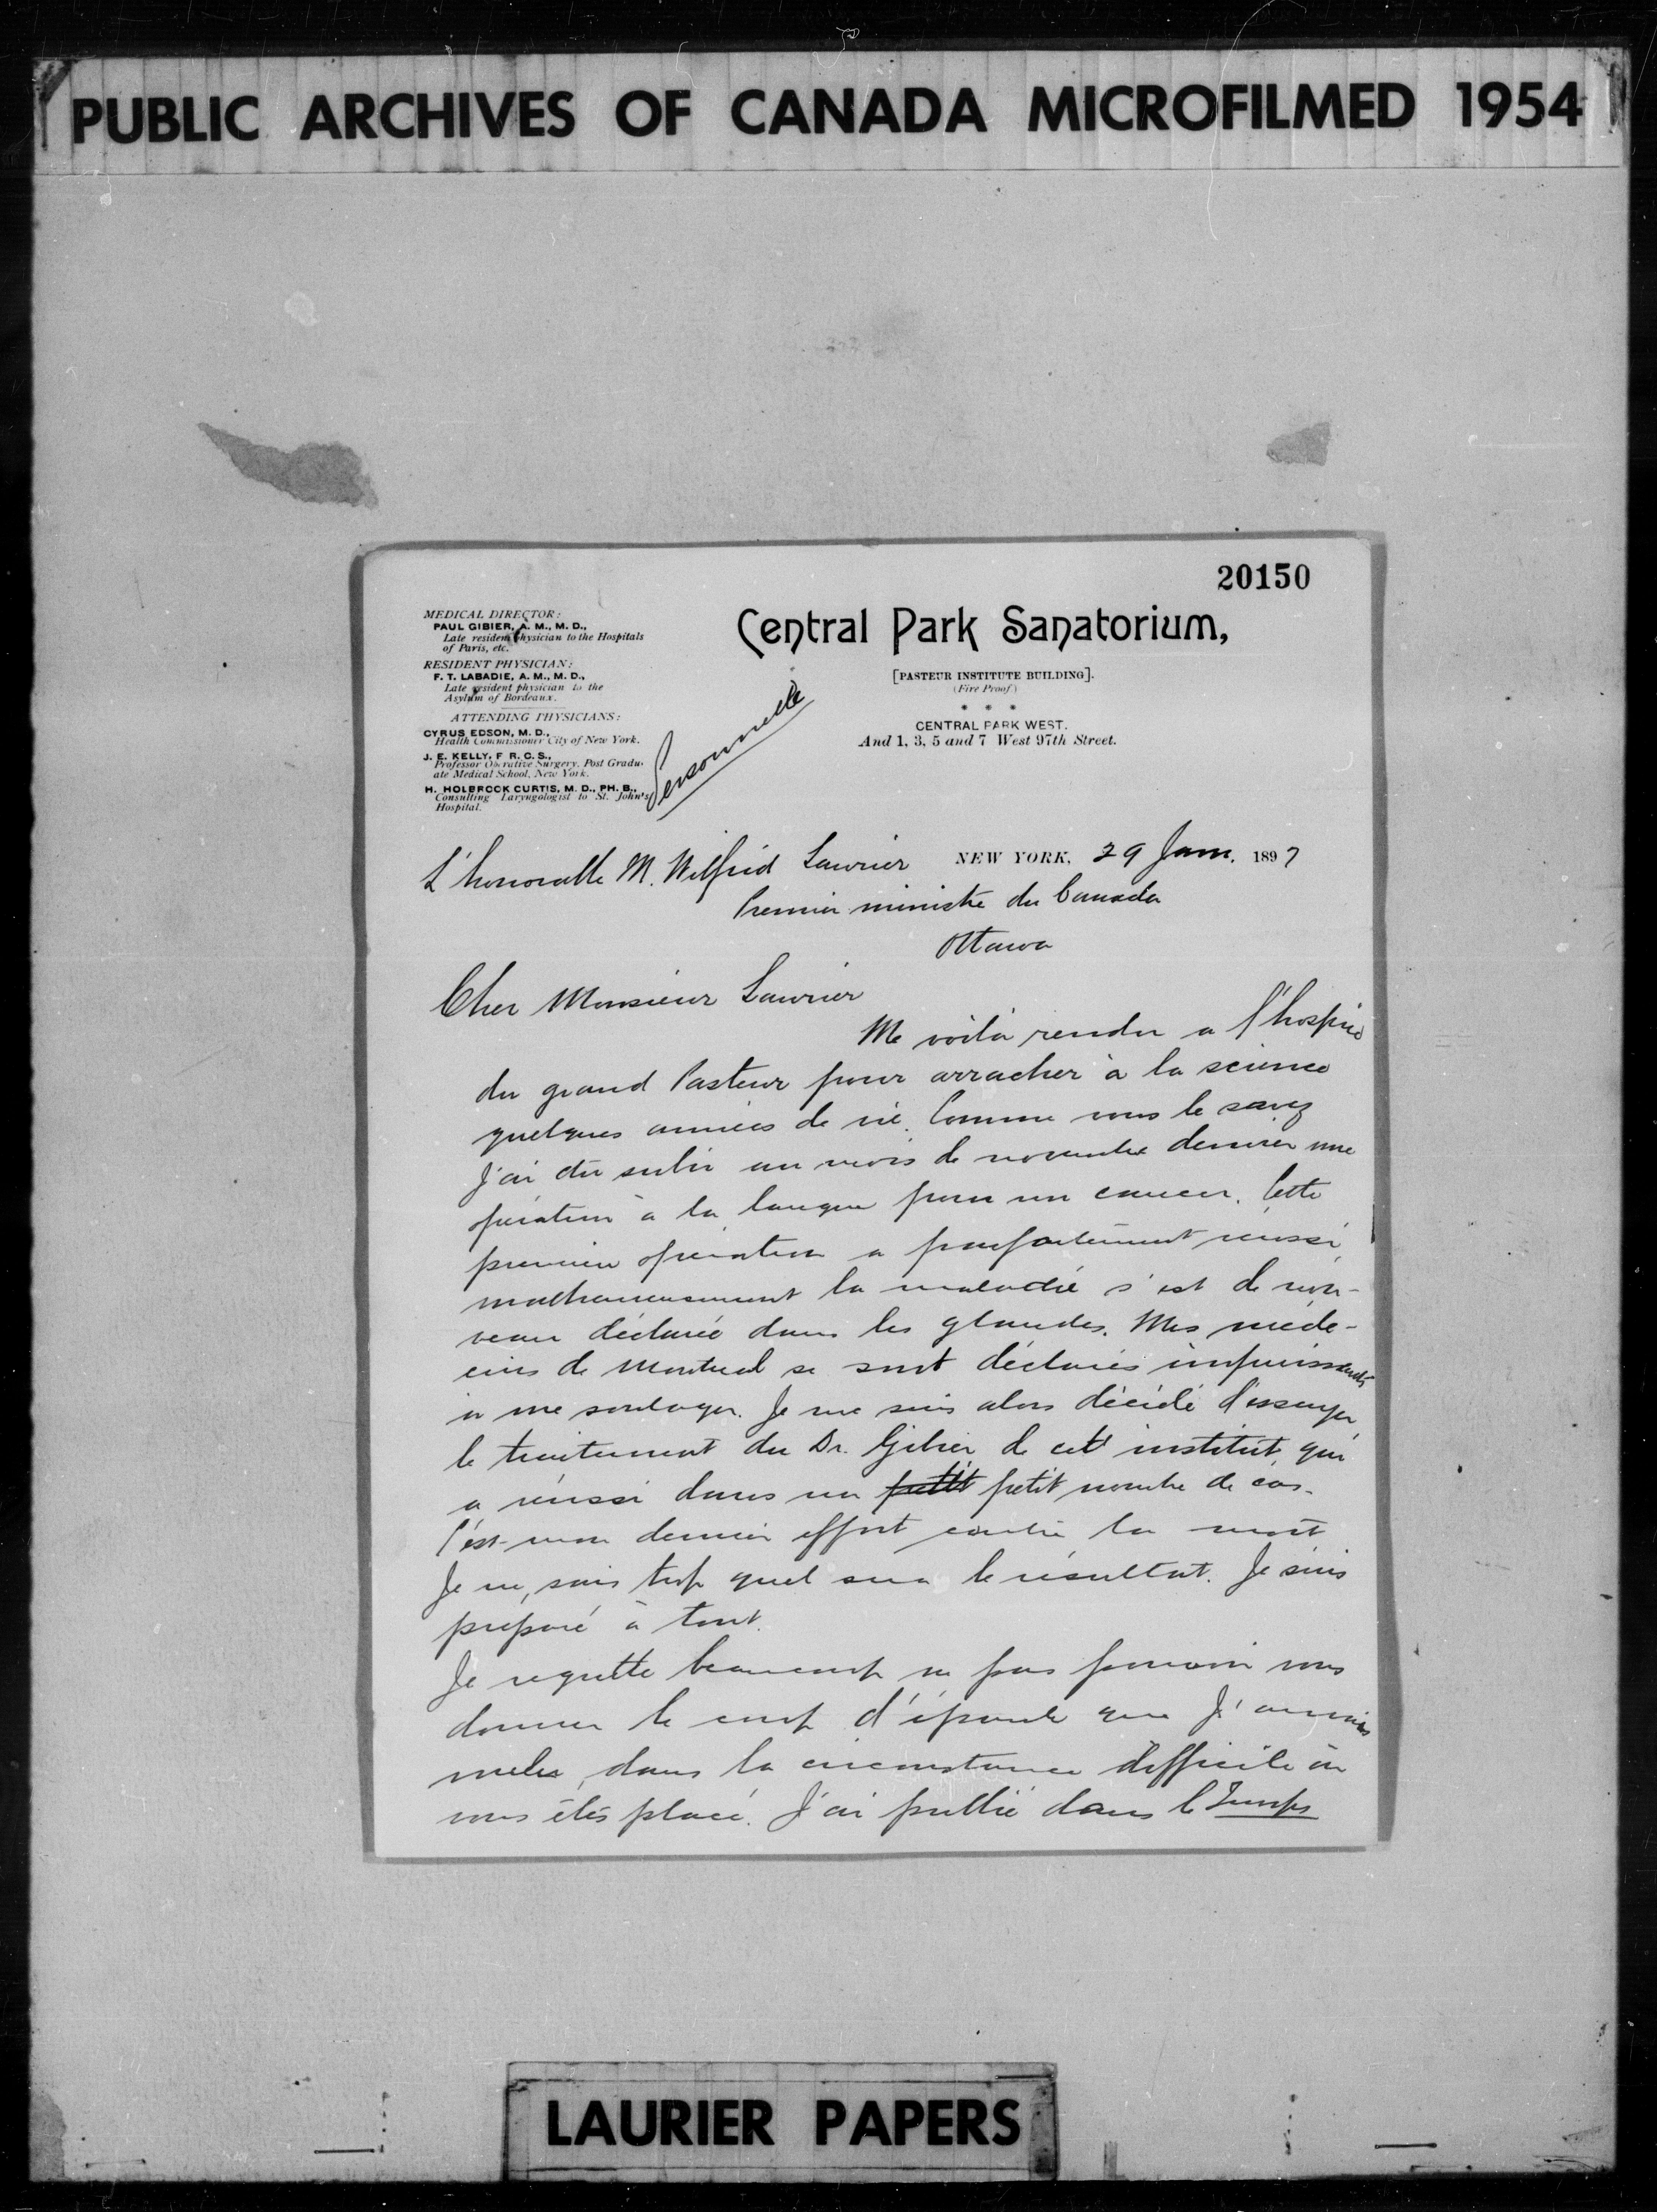 PUBLIC ARCHIVES OF CANADA MICROFILMED 1954
20150
MEDICAL DIRECTOR:
PAUL GIBIER, A. M., M. D.,
Late resident physician to the Hospitals
of Paris, etc.
RESIDENT PHYSICIAN:
F. T. LABADIE, A. M., M. D.,
Late resident physician to the
Asylum of Bordeaux.
ATTENDING PHYSICIANS:
CYRUS EDSON, M. D.,
Health Commissioner City of New York.
J. E. KELLY, F R. C. S.,
Professor Operative Surgery, Post Gradu-
ate Medical School, New York.
H. HOLBROOK CURTIS, M. D., PH. B.,
Consulting Laryngologist to St. John's
Hospital.
Central Park Sanatorium,
[PASTEUR INSTITUTE BUILDING].
(Fire Proof)
* * *
CENTRAL PARK WEST.
And 1, 3, 5 and 7 West 97th Street.
Personnelle
NEW YORK, 29 Janv. 1897
L'honorable M. Wilfrid Laurier
Premier ministre du Canada
Ottawa
Cher Monsieur Laurier
Me voilà rendu a l'hospice
du grand Pasteur pour arracher à la science
quelques années de vie. Comme vous le savez
J'ai du subir au mois de novembre dernier une
opération à la langue pour un cancer. Cette
première opération a parfaitement réussi,
malheureusement la maladie s'est de nou-
veau déclarée dans les glandes. Mes méde-
cins de Montreal se sont déclarés impuissants
à me soulager. Je me suis alors décidé d'essayer
le traitement du Dr. Gibier de cet institut, qui
a réussi dans un petit petit nombre de cas.
C'est mon dernier effort contre la mort
Je ne sais trop quel sera le résultat. Je suis
préparé à tout.
Je regrette beaucoup ne pas pouvoir vous
donner le coup d'épaule que J'aurais
voulu, dans la circonstance difficile où
vous êtes placé. J'ai publié dans le Temps
LAURIER PAPERS